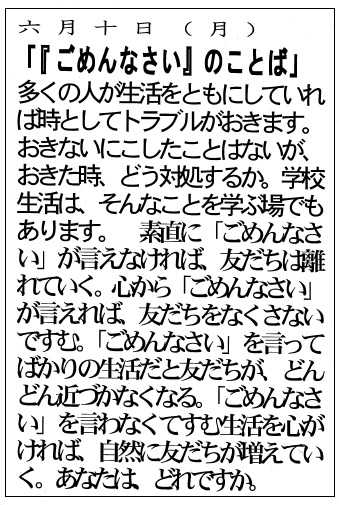 六月十日（月）
「『ごめんなさい』のことば」
多くの人が生活をともにしていれ
ば時としてトラブルがおきます。
おきないにこしたことはないが、
おきた時、どう対処するか。学校
生活は、そんなことを学ぶ場でも
あります。　素直に「ごめんなさ
い」が言えなければ、友だちは離
れていく。心から「ごめんなさい」
が言えれば、友だちをなくさない
ですむ。「ごめんなさい」を言って
ばかりの生活だと友だちが、どん
どん近づかなくなる。「ごめんなさ
い」を言わなくてすむ生活を心が
ければ、自然に友だちが増えてい
く。あなたは、どれですか。